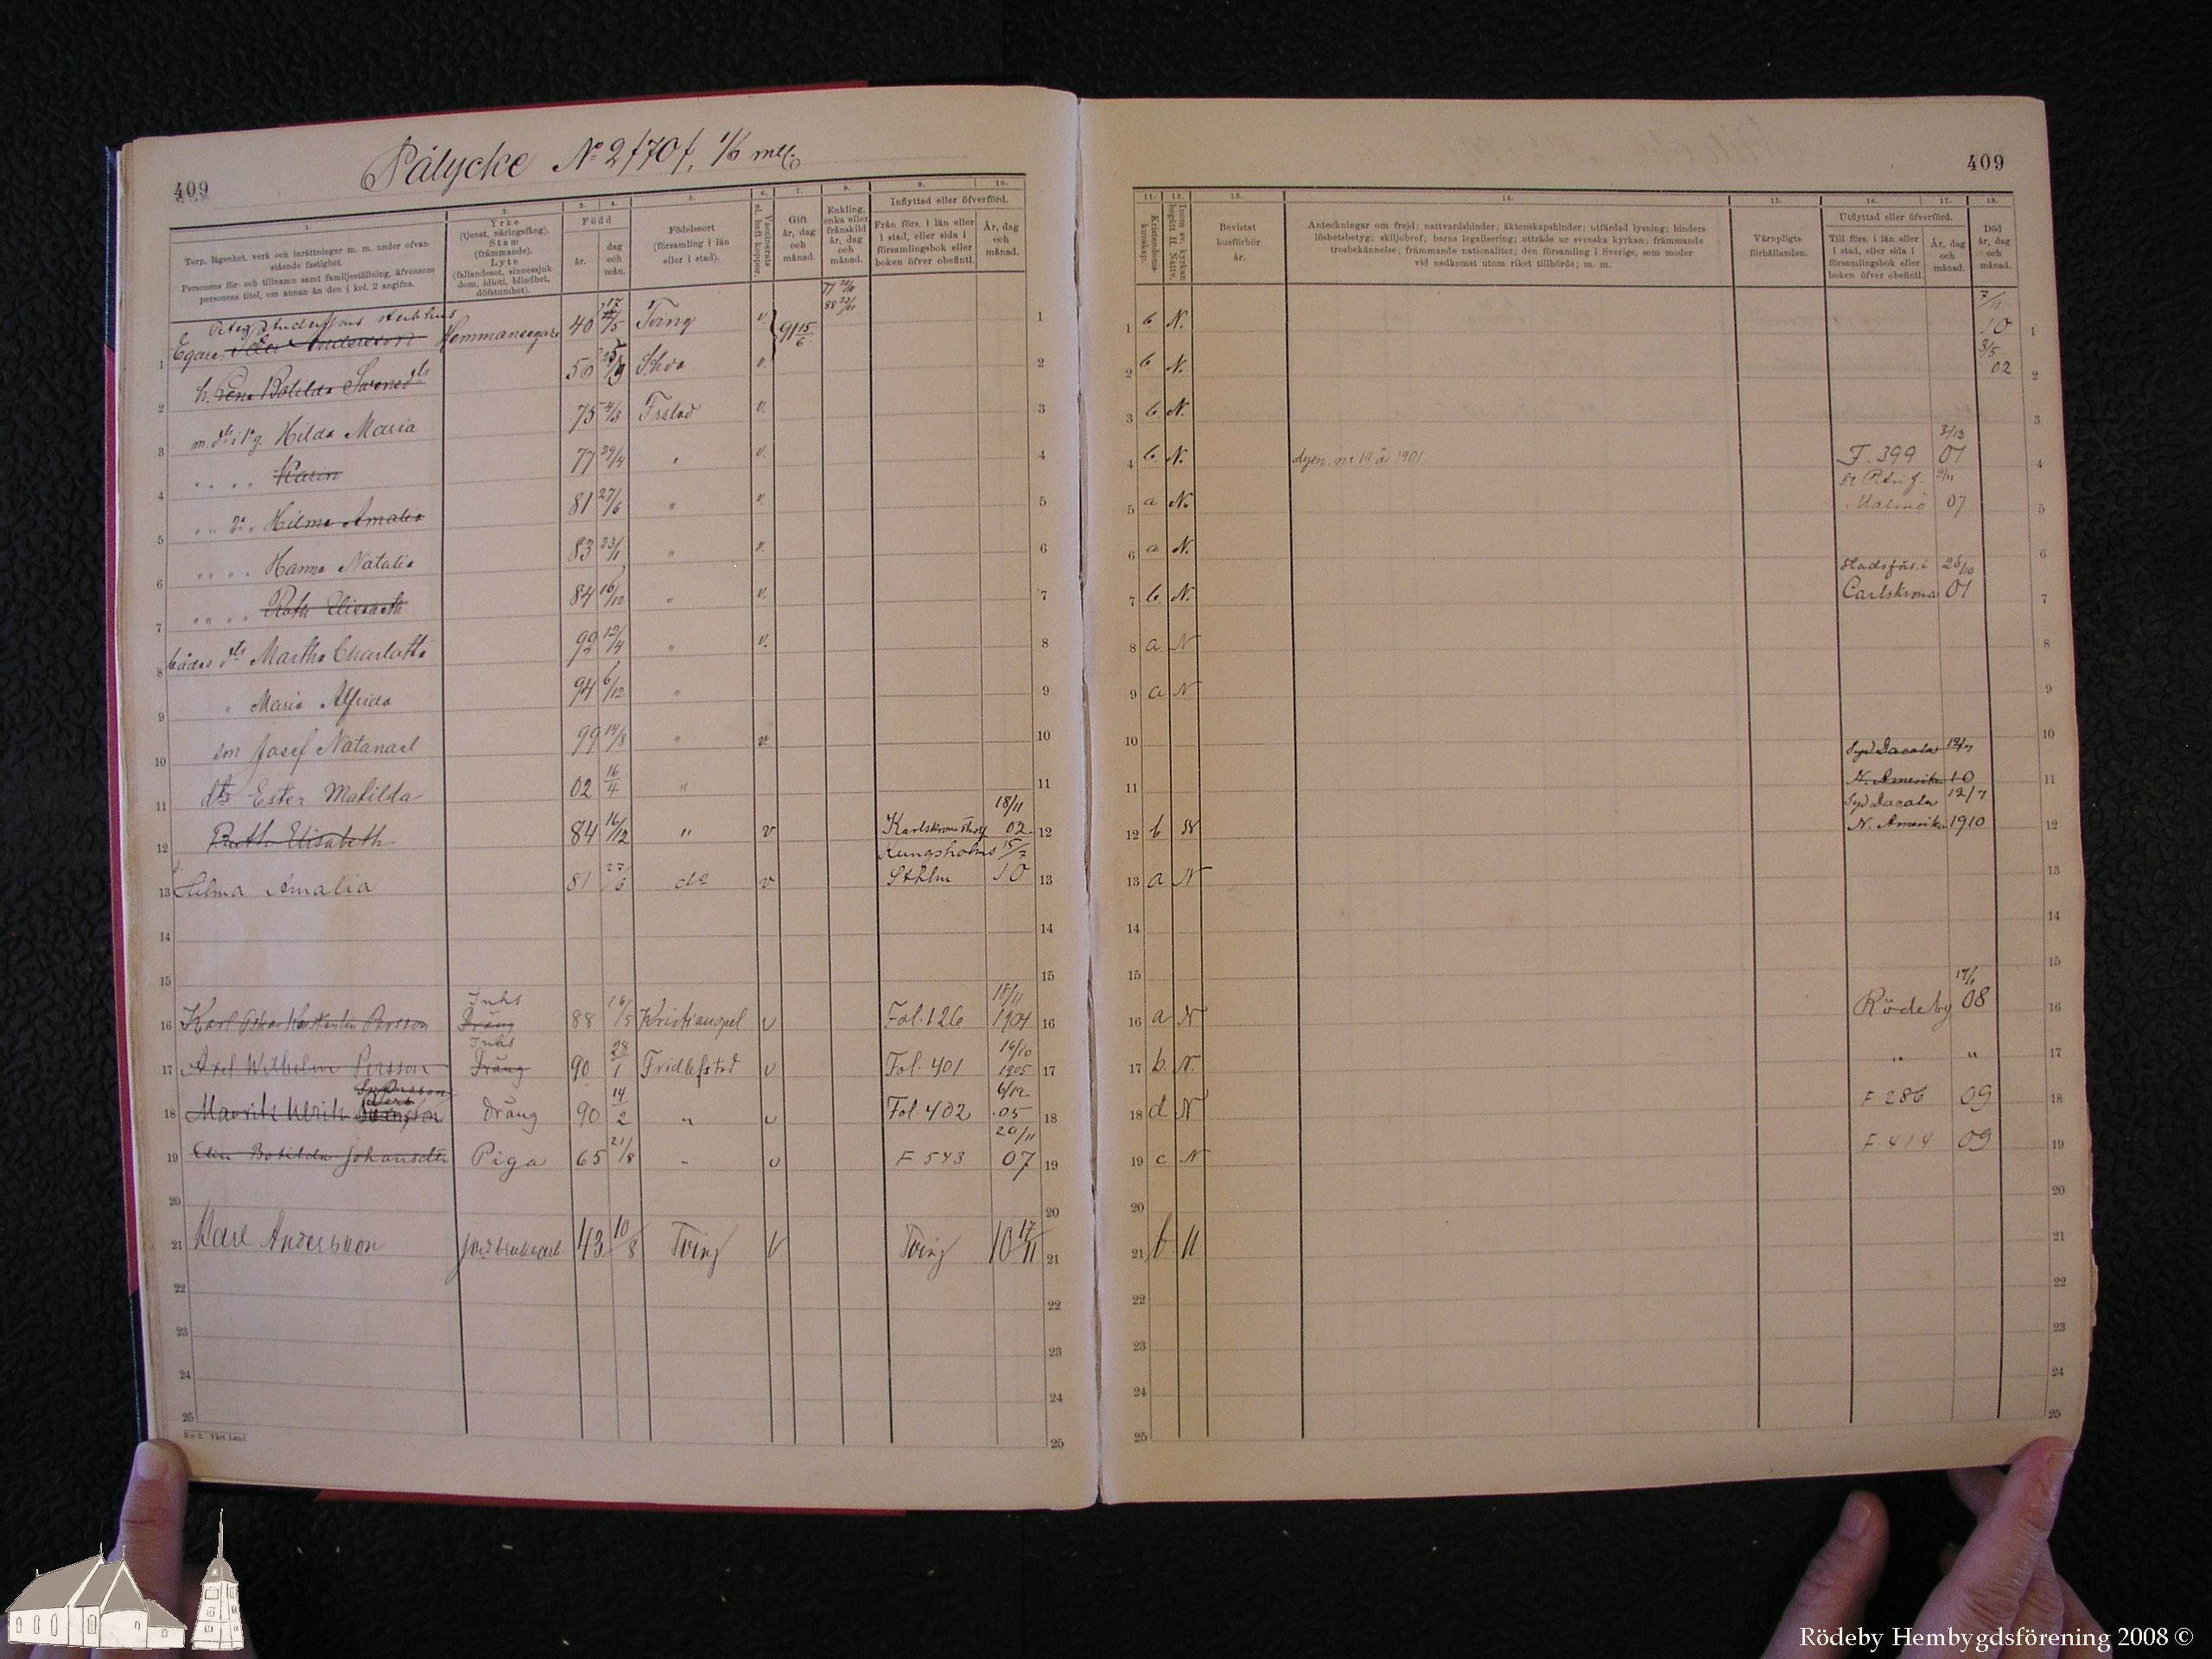 409
Pålycke No 2/70/, 1/6 mtl.
1. 2. 3. 4. 5. 6. 7. 8. 9. 10.
Torp, lägenhet, verk och inrättningar m. m. under ofvanstående fastighet.
Personens för- och tillnamn samt familjeställning, äfvensom personens titel, om annan än den i kol. 2 angifna.
Yrke (tjenst, näringsfång). Stam (främmande). Lyte (fallandesot, sinnessjukdom, idioti, blindhet, döfstumhet).
Född
år. dag och mån.
Födelseort (församling i län eller i stad).
Vaccinerats el. haft koppor.
Gift år, dag och månad.
Enkling, enka eller frånskild år, dag och månad.
Inflyttad eller öfverförd.
Från förs. i län eller i stad, eller sida i församlingsbok eller boken öfver obefintl.
År, dag och månad.
Peter Anderssons sterbhus
1 Egare: Peter Andersson Hemmansegare 40 Tving v. 91 15/6 1
2 h. Lena Botilda Svensdtr 56 v. 2
3 Hilda Maria 75 Frstad v. 3
4 " " " " Karin 77 29/4 " v. 4
5 Hilma Amalia 81 27/6 " v. 5
6 " " " " Hanna Natalia 83 23/1 " v. 6
7 " " " " Ruth Elisabeth 84 16/12 " v. 7
8 bådas dtr Martha Charlotta 92 12/4 " v. 8
9 " Maria Alfrida 94 6/12 " 9
10 son Josef Natanael 99 14/8 " v 10
11 dtr Ester Matilda 02 16/4 " 11
18/11
12 Ruth Elisabeth 84 16/12 " v Karlskrona 02 12
Kungsholms 15/7
13 Hilma Amalia 81 do v Sthlm 10 13
14 14
15 15
Inhs 18/11
16 Karl Oskar Konstantin Persson Dräng 88 16/5 Kristianopel v Fol. 126 1904 16
Inhs 16/10
17 Axel Wilhelm Persson Dräng 90 28/1 Fridlefstad v Fol. 401 1905 17
6/12
18 Maurik Ulrik dräng 90 14/2 " v Fol. 402 05 18
20/11
19 Elin Botilda Johansdtr Piga 65 21/8 " v F 543 07 19
20 20
21 Karl Andersson 43 10/8 Tving V. Tving 10 17/11 21
22 22
23 23
24 24
25 25
No 2. Vårt Land
409
11. 12. 13. 14. 15. 16. 17. 18.
Kristendomskunskap.
Inom sv. kyrkan begått H. Nattv.
Bevistat husförhör år.
Anteckningar om frejd; nattvardshinder; äktenskapshinder; utfärdad lysning; hinderslöshetsbetyg; skiljobref; barns legalisering; utträde ur svenska kyrkan; främmande trosbekännelse; främmande nationalitet; den församling i Sverige, som moder vid nedkomst utom riket tillhörde; m. m.
Värnpligtsförhållanden.
Utflyttad eller öfverförd.
Till förs. i län eller i stad, eller sida i församlingsbok eller boken öfver obefintl.
År, dag och månad.
Död år, dag och månad.
7/11
1 b N. 10 1
3/5
2 b N. 02 2
3 b. N. 3
3/12
4 b. N. lysn. nr 14 år 1901. F. 399 01 4
St Petri f.
5 a N. Malmö 07 5
6 a N. 6
Stadsförs. i 28/10
7 b. N. Carlskrona 01 7
8 a N 8
9 a N 9
10 Syd Dacota 12/7 10
11 N. Amerika 10 11
Syd Dacota 12/7
12 b N N. Amerika 1910 12
13 a N 13
14 14
15 15
17/1
16 a N Rödeby 08 16
17 b. N. " " 17
18 d N F 286 09 18
19 c N F 414 09 19
20 20
21 b N 21
22 22
23 23
24 24
25 25
Rödeby Hembygdsförening 2008 ©